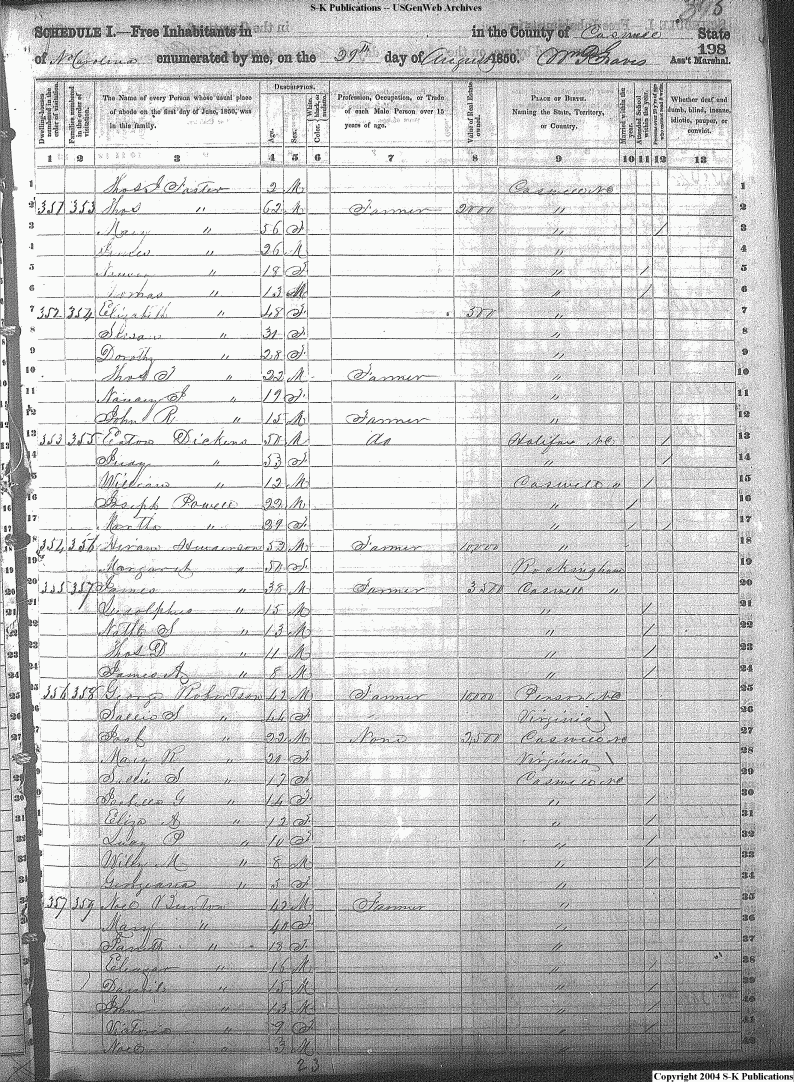 S-K Publications -- USGenWeb Archives
SCHEDULE I.—Free Inhabitants in in the County of Caswell State
of N. Carolina enumerated by me, on the 29th day of August 1850. Wm P Graves Ass't Marshal.
198
Dwelling-houses numbered in the order of visitation.
Families numbered in the order of visitation.
The Name of every Person whose usual place of abode on the first day of June, 1850, was in this family.
Description.
Age.
Sex.
Color. White, black, or mulatto.
Profession, Occupation, or Trade of each Male Person over 15 years of age.
Value of Real Estate owned.
Place of Birth. Naming the State, Territory, or Country.
Married within the year.
Attended School within the year.
Persons over 20 y'rs of age who cannot read & write.
Whether deaf and dumb, blind, insane, idiotic, pauper, or convict.
1 2 3 4 5 6 7 8 9 10 11 12 13
1 Thos J Foster 2 M Caswell NC 1
2 351 353 Thos " 62 M Farmer 2000 " 2
3 Mary " 56 F " / 3
4 " 26 M " 4
5 " 18 F " / 5
6 Thomas " 13 M " / 6
7 352 354 Elizabeth " 48 F 300 " 7
8 Susan " F " 8
9 Dorothy " 28 F " 9
10 Thos " 22 M Farmer " 10
11 Nancy " 19 F " 11
12 John R " 15 M Farmer " 12
13 353 355 Eaton Dickens 50 M do Halifax NC / 13
14 " 53 F " / 14
15 William " 12 M Caswell " / 15
16 Joseph Powell 22 M " / 16
17 Martha " F " / / 17
18 354 356 Hiram Henderson 52 M Farmer 10000 " 18
19 Margaret " 50 F Rockingham 19
20 355 357 James " 38 M Farmer 3500 Caswell " 20
21 " 15 M " / 21
22 Nathl S " 13 M " / 22
23 Thos D " 11 M " / 23
24 James A " 8 M " / 24
25 356 358 George Robertson 42 M Farmer 10000 Person NC 25
26 Sallie S " 44 F Virginia 26
27 " 22 M None 2,500 Caswell NC 27
28 Mary R " F Virginia 28
29 Sallie S " 17 F Caswell NC 29
30 G " 14 F " / 30
31 Eliza A " 12 F " / 31
32 Lucy P " 10 F " / 32
33 Wilby M " 8 M " / 33
34 Georgiana " 5 F " 34
35 357 359 42 M Farmer " 35
36 Mary " 40 F " 36
37 " 18 F " 37
38 " 16 M " / 38
39 " 15 M " / 39
40 John " 13 M " / 40
41 Victoria " 9 F " / 41
42 " 3 M " 42
23
Copyright 2004 S-K Publications